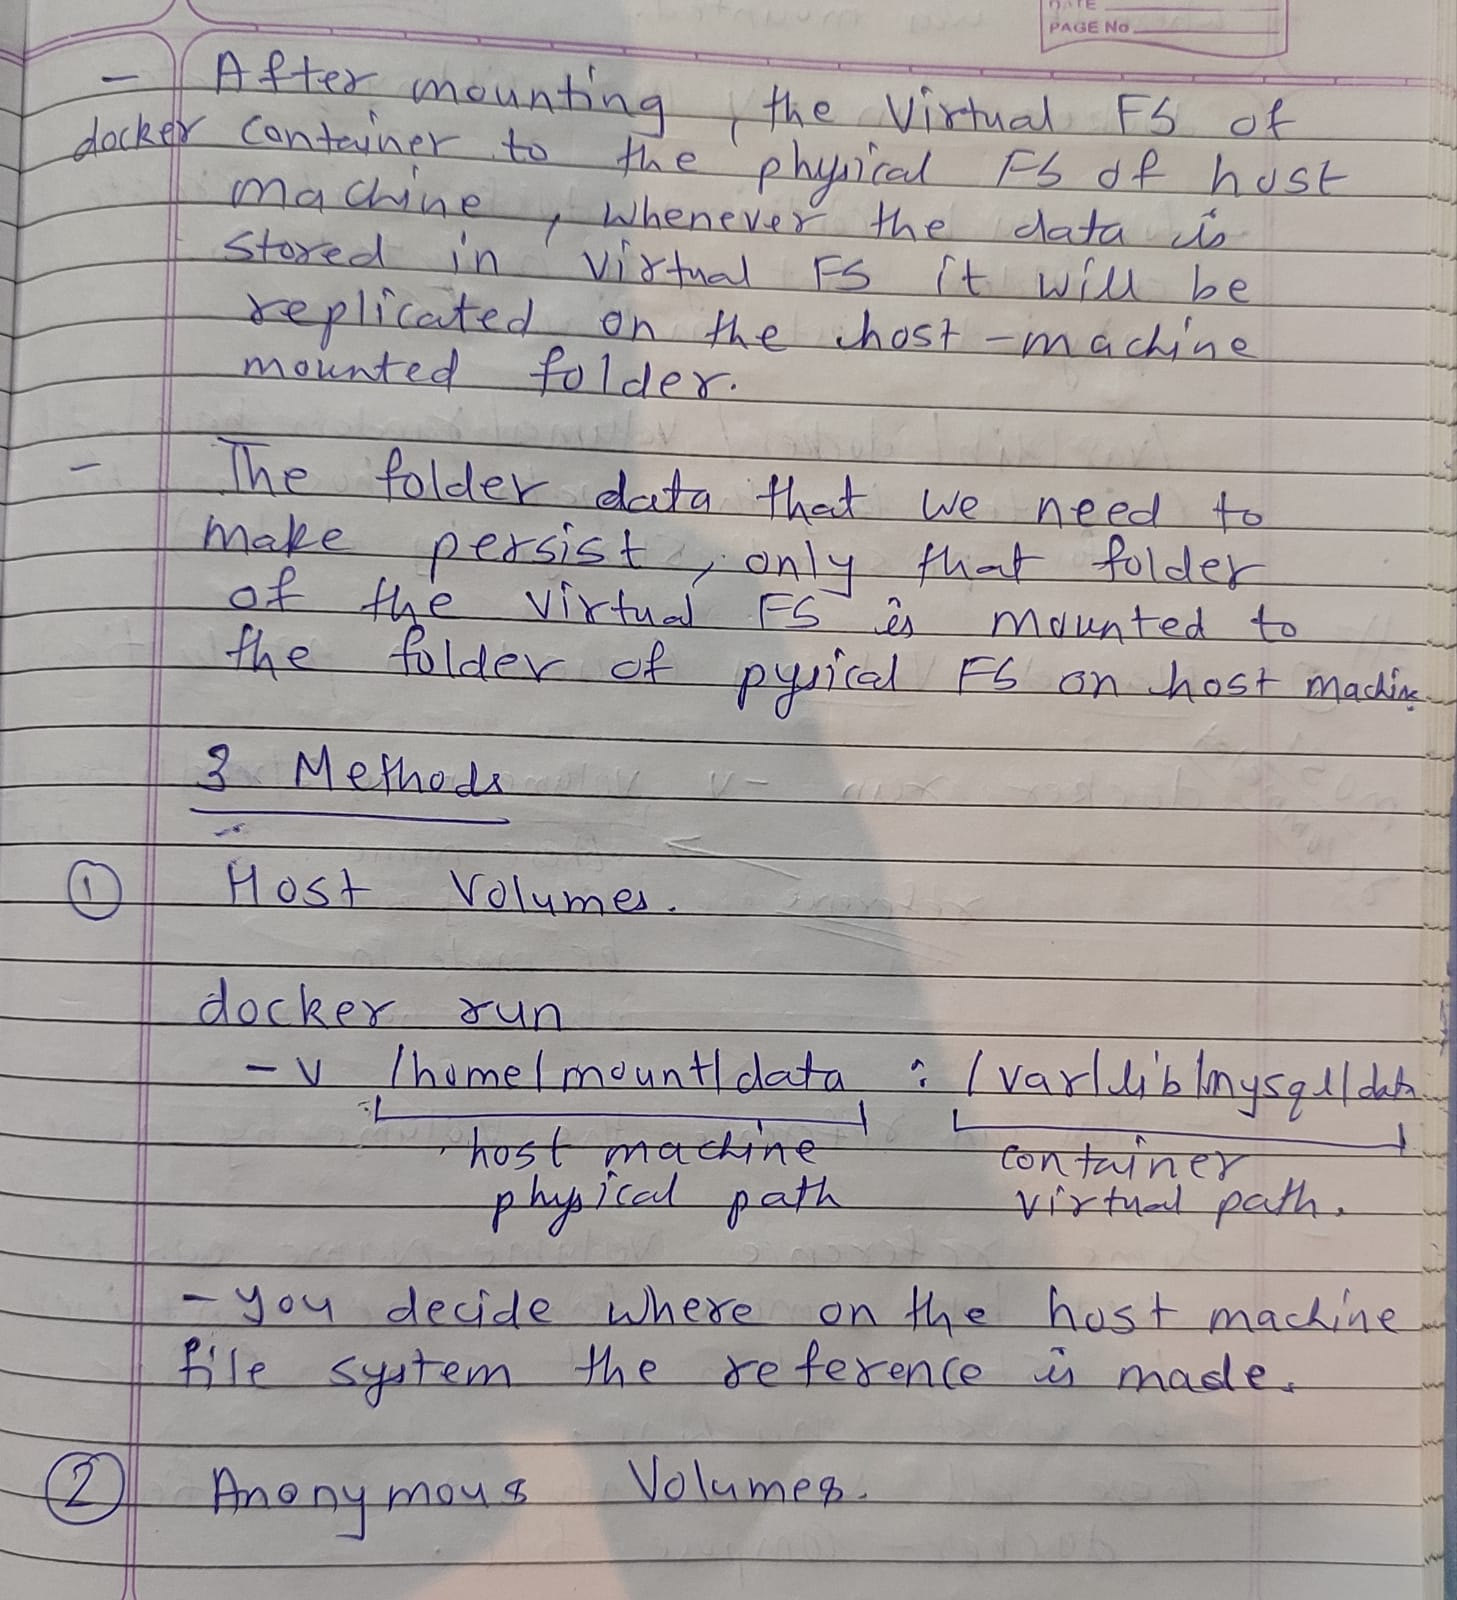 DATE
PAGE No.
- After mounting, the Virtual FS of
docker container to the physical FS of host
machine, whenever the data is
stored in virtual FS it will be
replicated on the host-machine
mounted folder.
- The folder data that we need to
make persist, only that folder
of the virtual FS is mounted to
the folder of pysical FS on host machine.
3 Methods
① Host Volumes.
docker run
-v /home/mount/data : /var/lib/mysql/data
host machine container
physical path virtual path.
- you decide where on the host machine
file system the reference is made.
② Anonymous Volumes.